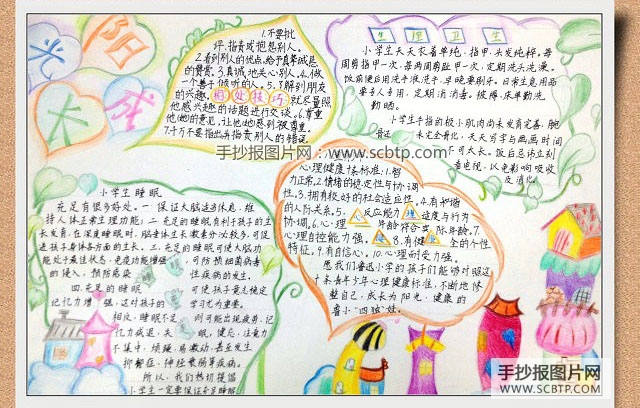 阳光
成长
1.不要批
评、指责或抱怨别人。
2.看到别人的优点,给予真挚诚恳
的赞赏。3.真诚地关心别人。4.做
一个善于倾听的人。5.了解到朋友
的兴趣,相处技巧就尽量照
他感兴趣的话题进行交谈。6.尊重
他(她)的意见,让他(她)感到被尊重。
7.千万不要指出并指责别人的错误。
生理卫生
小学生天天衣着单纯,指甲、头发纯粹。每
周剪指甲一次,每两周剪趾甲一次,定期洗头洗澡。
饭前便后用洗手液洗手,早晚要刷牙。日常生息用品
要专人专用,定期消消毒。被褥、床单勤洗
勤晒。
小学生手指的极小肌肉尚未发育完善,腕
骨还未完全骨化,天天写字与画画时间
不可太长。饭后忌讳立刻
看电视,以免影响吸收
及消化。
手抄报图片网:www.scbtp.com
小学生睡眠
充足有很多好处。一.保证大脑适当休息,维
持人体正常生理功能;二.充足的睡眠有利于孩子的生
长发育,在深度睡眠时,脑垂体生长激素分泌较多,可促
进孩子身体各方面的生长。三.充足的睡眠可使人脑功
能处于最佳状态,免疫功能增强,可防预细菌病毒
的侵入,预防感染性疾病的发生。
四.充足的睡眠可使孩子意志稳定
记忆力增强,这对孩子的学习尤为重要。
相反,睡眠不足,则可能出现疲劳、记
忆力减退、失眠、健忘、注意力
不集中、烦躁、易激动,甚至发生
抑郁症、神经衰弱等疾病。
所以,我们热切提倡
小学生一定要保证充足睡眠。
心理健康标准:1.智
力正常。2.情绪的稳定性与协调
性。3.拥有较好的社会适应性。4.有和谐
的人际关系。5.心反应能力适度与行为
协调。6.心理年龄符合实际年龄。7.
心理自控能力强。8.有健全的个性
特征。9.有自信心。10.心理耐受力强。
愿我们鲁迅小学的孩子们能够对照这
十条青少年心理健康标准,不断地修
整自己,成长为阳光、健康的
鲁小"四独"娃。
手抄报图片网
WWW.SCBTP.COM